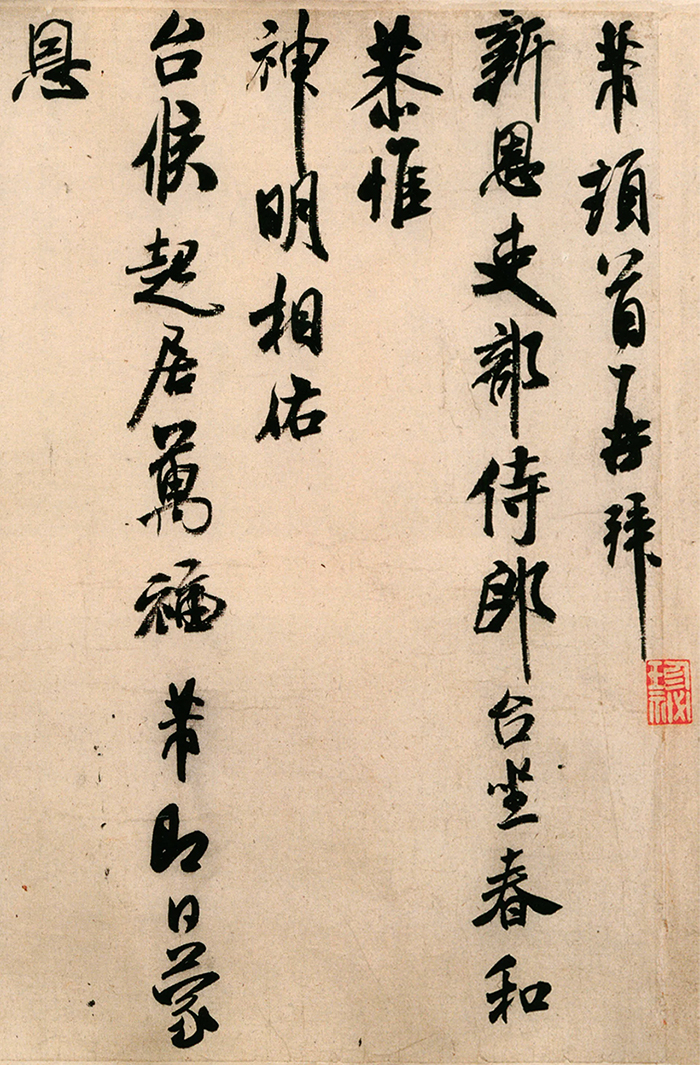 芾頓首再拜
新恩吏部侍郎台坐春和
恭惟
神明相佑
台候起居萬福芾即日蒙
恩